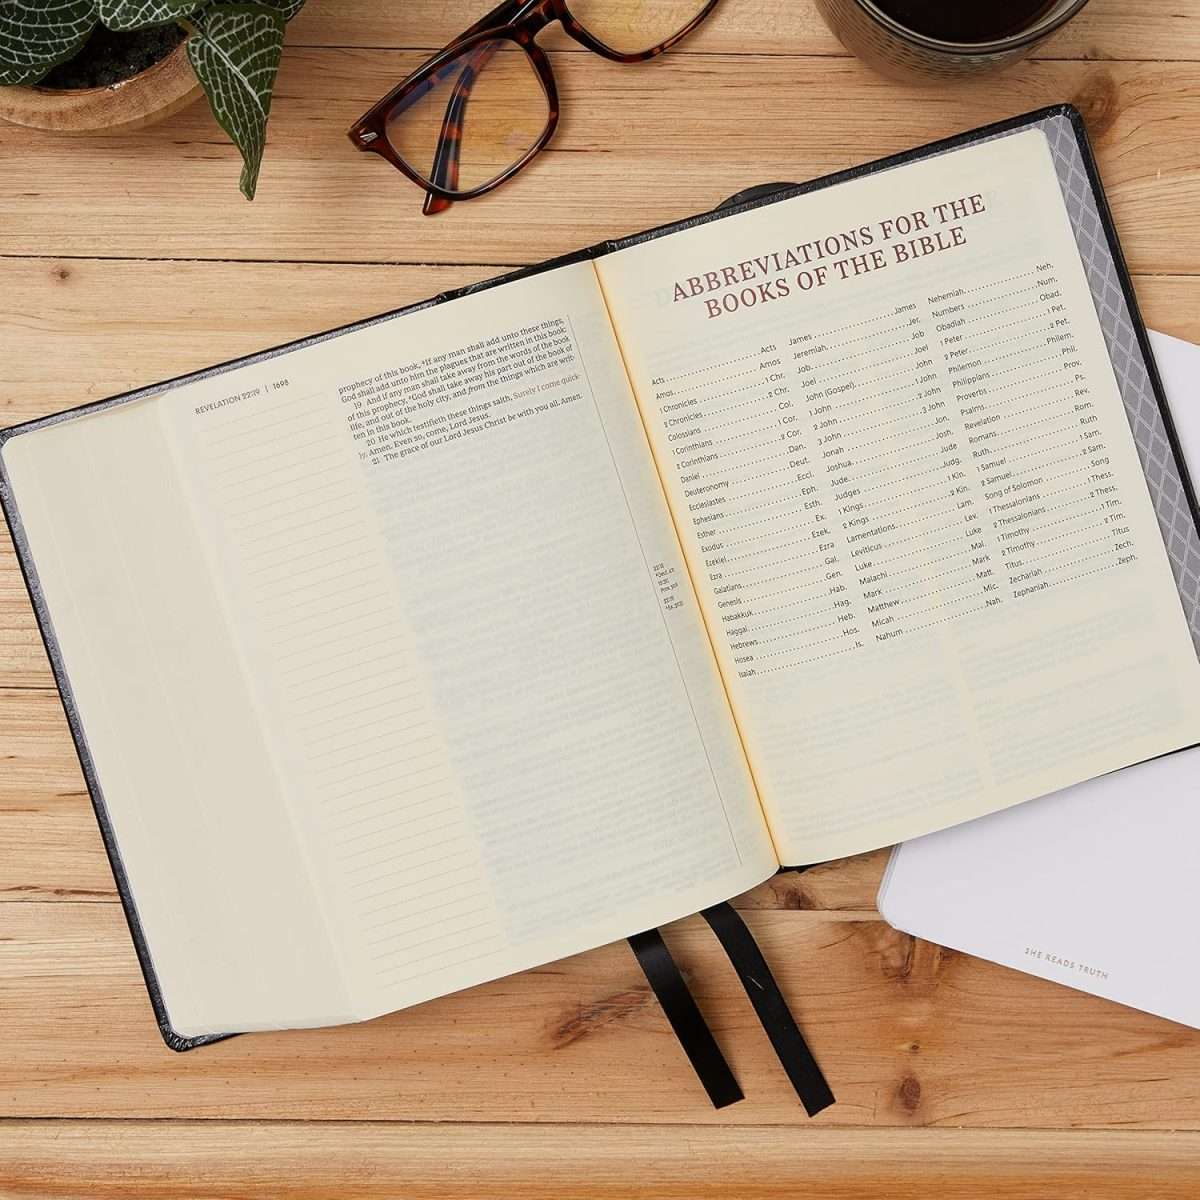 REVELATION 22:19 | 1698
prophecy of this book, If any man shall add unto these things,
God shall add unto him the plagues that are written in this book:
19 And if any man shall take away from the words of the book
of this prophecy, God shall take away his part out of the book of
life, and out of the holy city, and from the things which are writ-
ten in this book.
20 He which testifieth these things saith, Surely I come quick-
ly. Amen. Even so, come, Lord Jesus.
21 The grace of our Lord Jesus Christ be with you all. Amen.
ABBREVIATIONS FOR THE
BOOKS OF THE BIBLE
Acts Acts
Amos Amos
1 Chronicles 1 Chr.
2 Chronicles 2 Chr.
Colossians Col.
1 Corinthians 1 Cor.
2 Corinthians 2 Cor.
Daniel Dan.
Deuteronomy Deut.
Ecclesiastes Eccl.
Ephesians Eph.
Esther Esth.
Exodus Ex.
Ezekiel Ezek.
Ezra Ezra
Galatians Gal.
Genesis Gen.
Habakkuk Hab.
Haggai Hag.
Hebrews Heb.
Hosea Hos.
Isaiah Is.
James James
Jeremiah Jer.
Job Job
Joel Joel
John (Gospel) John
1 John 1 John
2 John 2 John
3 John 3 John
Jonah Jon.
Joshua Josh.
Jude Jude
Judges Judg.
1 Kings 1 Kin.
2 Kings 2 Kin.
Lamentations Lam.
Leviticus Lev.
Luke Luke
Malachi Mal.
Mark Mark
Matthew Matt.
Micah Mic.
Nahum Nah.
Nehemiah Neh.
Numbers Num.
Obadiah Obad.
1 Peter 1 Pet.
2 Peter 2 Pet.
Philemon Philem.
Philippians Phil.
Proverbs Prov.
Psalms Ps.
Revelation Rev.
Romans Rom.
Ruth Ruth
1 Samuel 1 Sam.
2 Samuel 2 Sam.
Song of Solomon Song
1 Thessalonians 1 Thess.
2 Thessalonians 2 Thess.
1 Timothy 1 Tim.
2 Timothy 2 Tim.
Titus Titus
Zechariah Zech.
Zephaniah Zeph.
SHE READS TRUTH